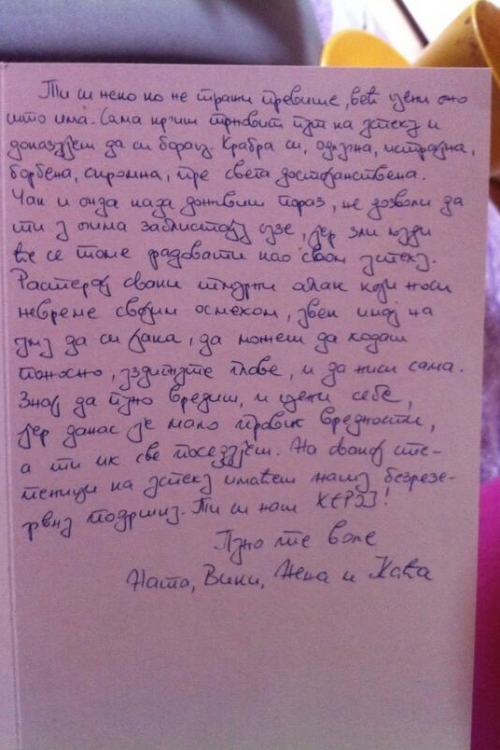 Ти си неко ко не тражи превише, већ цени оно
што има. Сама крчиш трновит пут ка успеху и
доказујеш да си борац. Храбра си, одлучна, истрајна,
борбена, скромна, пре света достојанствена.
Чак и онда када доживиш пораз, не дозволи да
ти у очима заблистају сузе, јер зли људи
ће се томе радовати као свом успеху.
Растерај сваки тмурни облак који носи
невреме својим осмехом, увек имај на
уму да си јака, да можеш да ходаш
поносно, уздигнуте главе, и да ниси сама.
Знај да пуно вредиш, и цени себе,
јер данас је мало правих вредности,
а ти их све поседујеш. На сваној сте-
пеници ка успеху имаћеш нашу безрезе-
рвну подршку. Ти си наш ХЕРОЈ!
Пуно те воле
Ната, Вики, Нена и Каћа